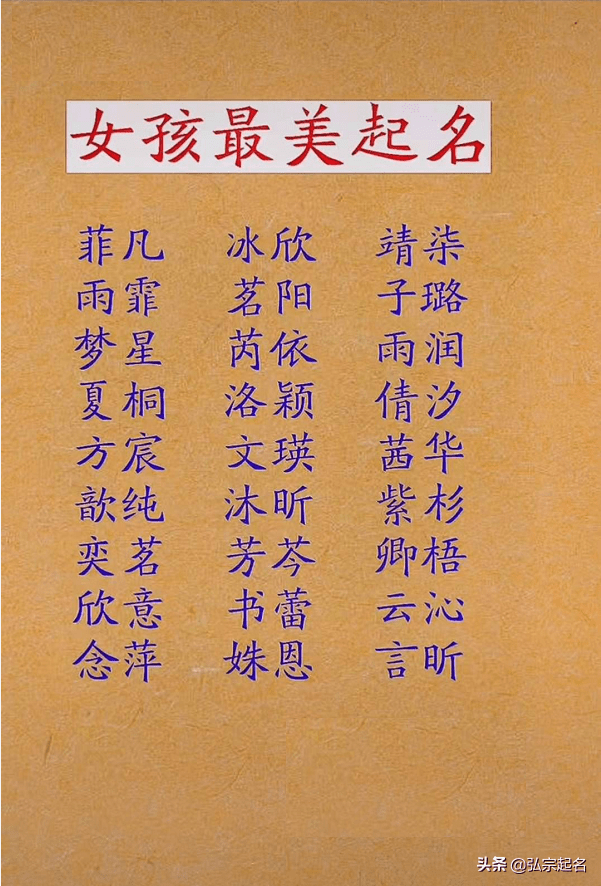 女孩最美起名
菲凡 冰欣 靖柒
雨霏 茗阳 子璐
梦星 芮依 雨润
夏桐 洛颖 倩汐
方宸 文瑛 茜华
歆纯 沐昕 紫杉
奕茗 芳芩 卿梧
欣意 书蕾 云沁
念萍 姝恩 言昕
头条 @弘宗起名